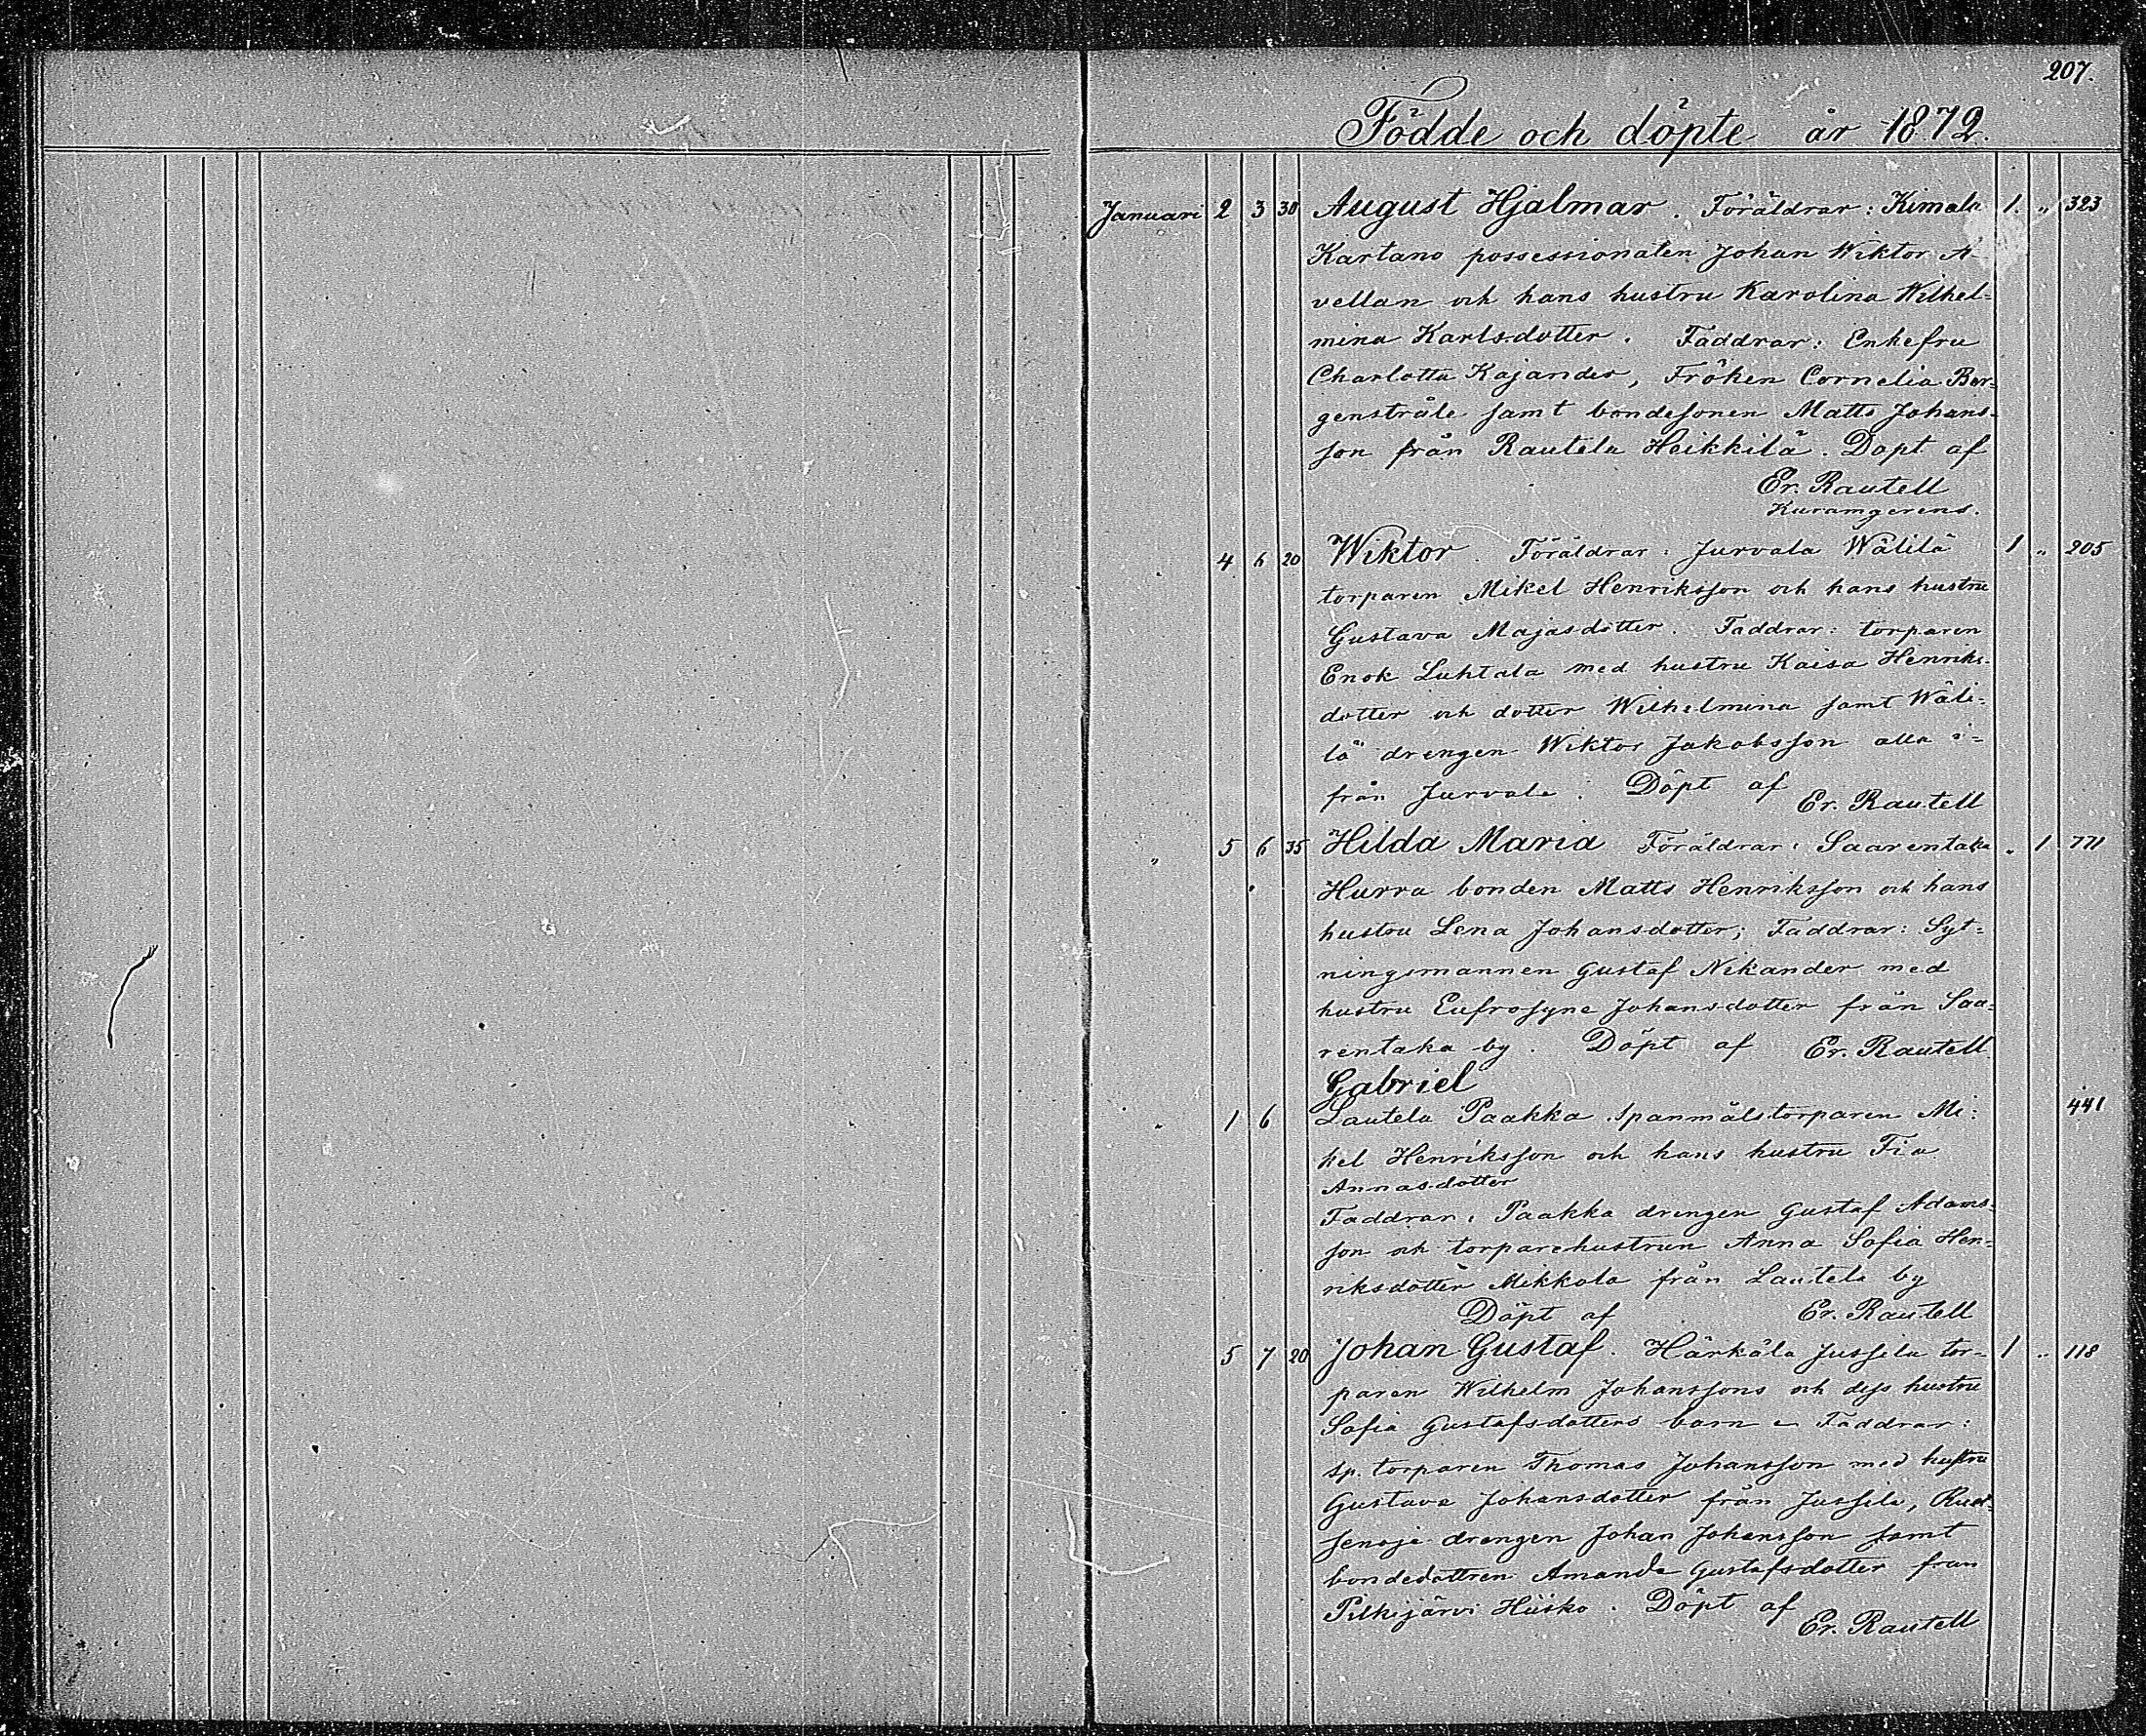 207.
Födde och döpte år 1872.
Januari 2 3 30 August Hjalmar. Föräldrar: Kimala 1. " 323
Kartano possessionaten Johan Wiktor A-
vellan och hans hustru Karolina Wilhel-
mina Karlsdotter. Faddrar: Enkefru
Charlotta Kajander, Fröken Cornelia Bor-
genstråle samt bondesonen Matts Johans-
son från Rautela Heikkilä. Döpt af
Er. Rautell
4 6 20 Wiktor. Föräldrar: Jurvala Wälilä 1 " 205
torparen Mikel Henriksson och hans hustru
Gustava Majasdotter. Faddrar: torparen
Enok Luhtala med hustru Kaisa Henriks-
dotter och dotter Wilhelmina samt Wäli-
lä drengen Wiktor Jakobsson alla i-
från Jurvala. Döpt af Er. Rautell
" 5 6 35 Hilda Maria Föräldrar: Saarentaka " 1 771
Hurra bonden Matts Henriksson och hans
hustru Lena Johansdotter; Faddrar: Syt-
ningsmannen Gustaf Nikander med
hustru Eufrosyne Johansdotter från Saa-
rentaka by. Döpt af Er. Rautell
Gabriel
" 1 6 Lautela Paakka Spanmålstorparen Mi- 441
kel Henriksson och hans hustru Fia
Annasdotter
Faddrar: Paakka drengen Gustaf Adams-
son och torparehustrun Anna Sofia Hen-
riksdotter Mikkola från Lautela by
Döpt af Er. Rautell
5 7 20 Johan Gustaf. Härkälä Jussila tor- 1 " 118
paren Wilhelm Johanssons och dess hustru
Sofia Gustafsdotters barn Faddrar:
sp. torparen Thomas Johansson med hustru
Gustava Johansdotter från Jussila,
drengen Johan Johansson samt
bondedottren Amanda Gustafsdotter från
Pilkijärvi Huisko. Döpt af
Er. Rautell